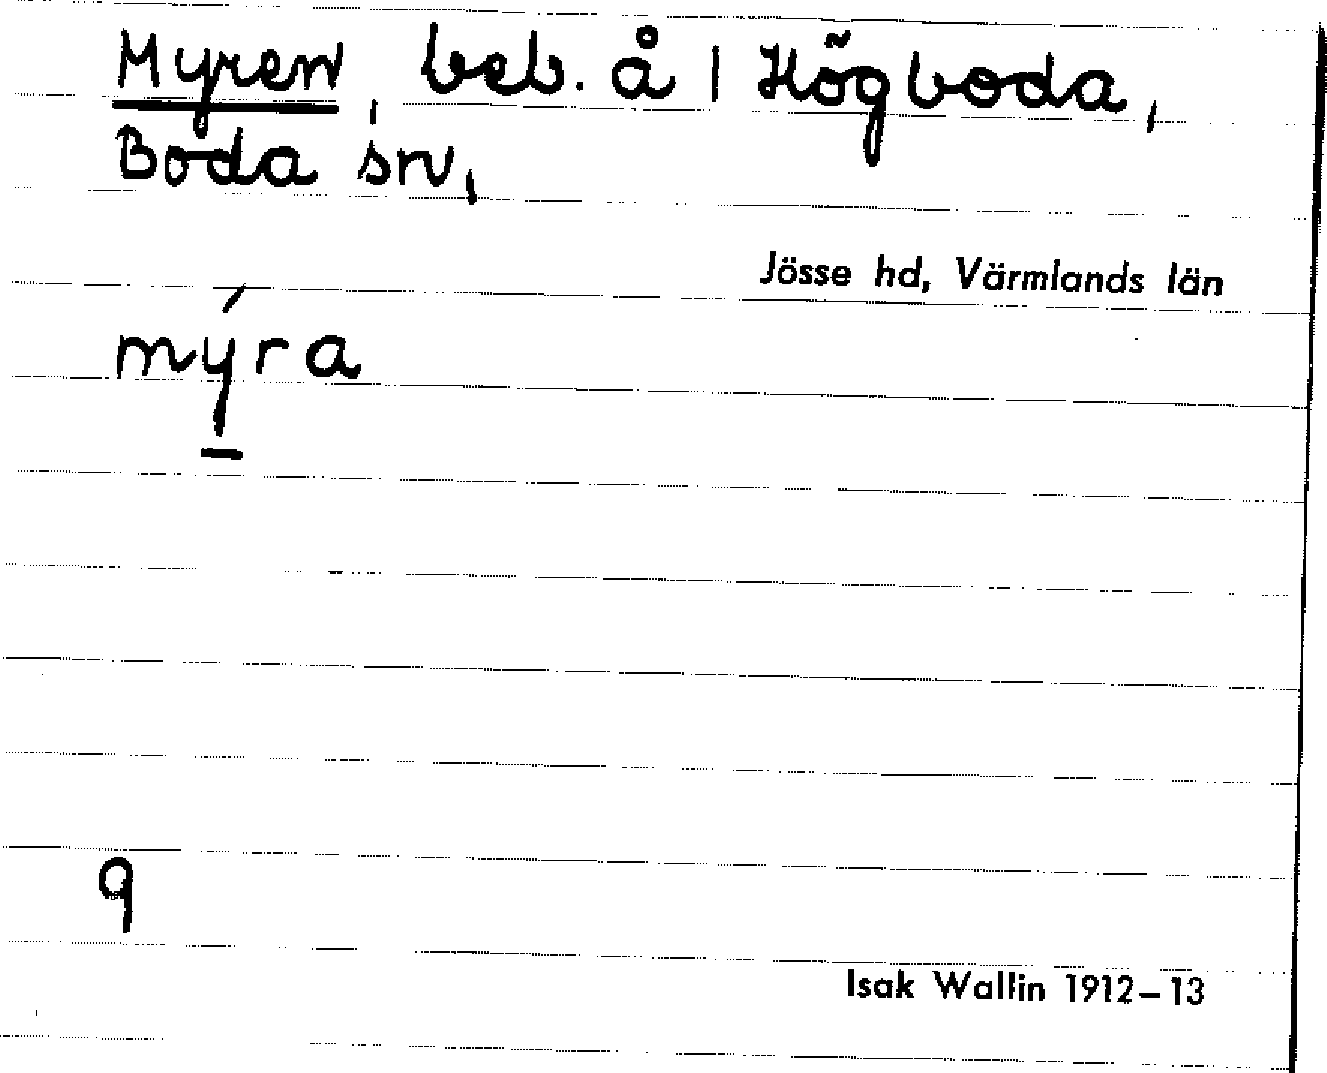 Myren, beb. å 1 Högboda,
Boda sn,
Jösse hd, Värmlands län
mýra
9
Isak Wallin 1912–13